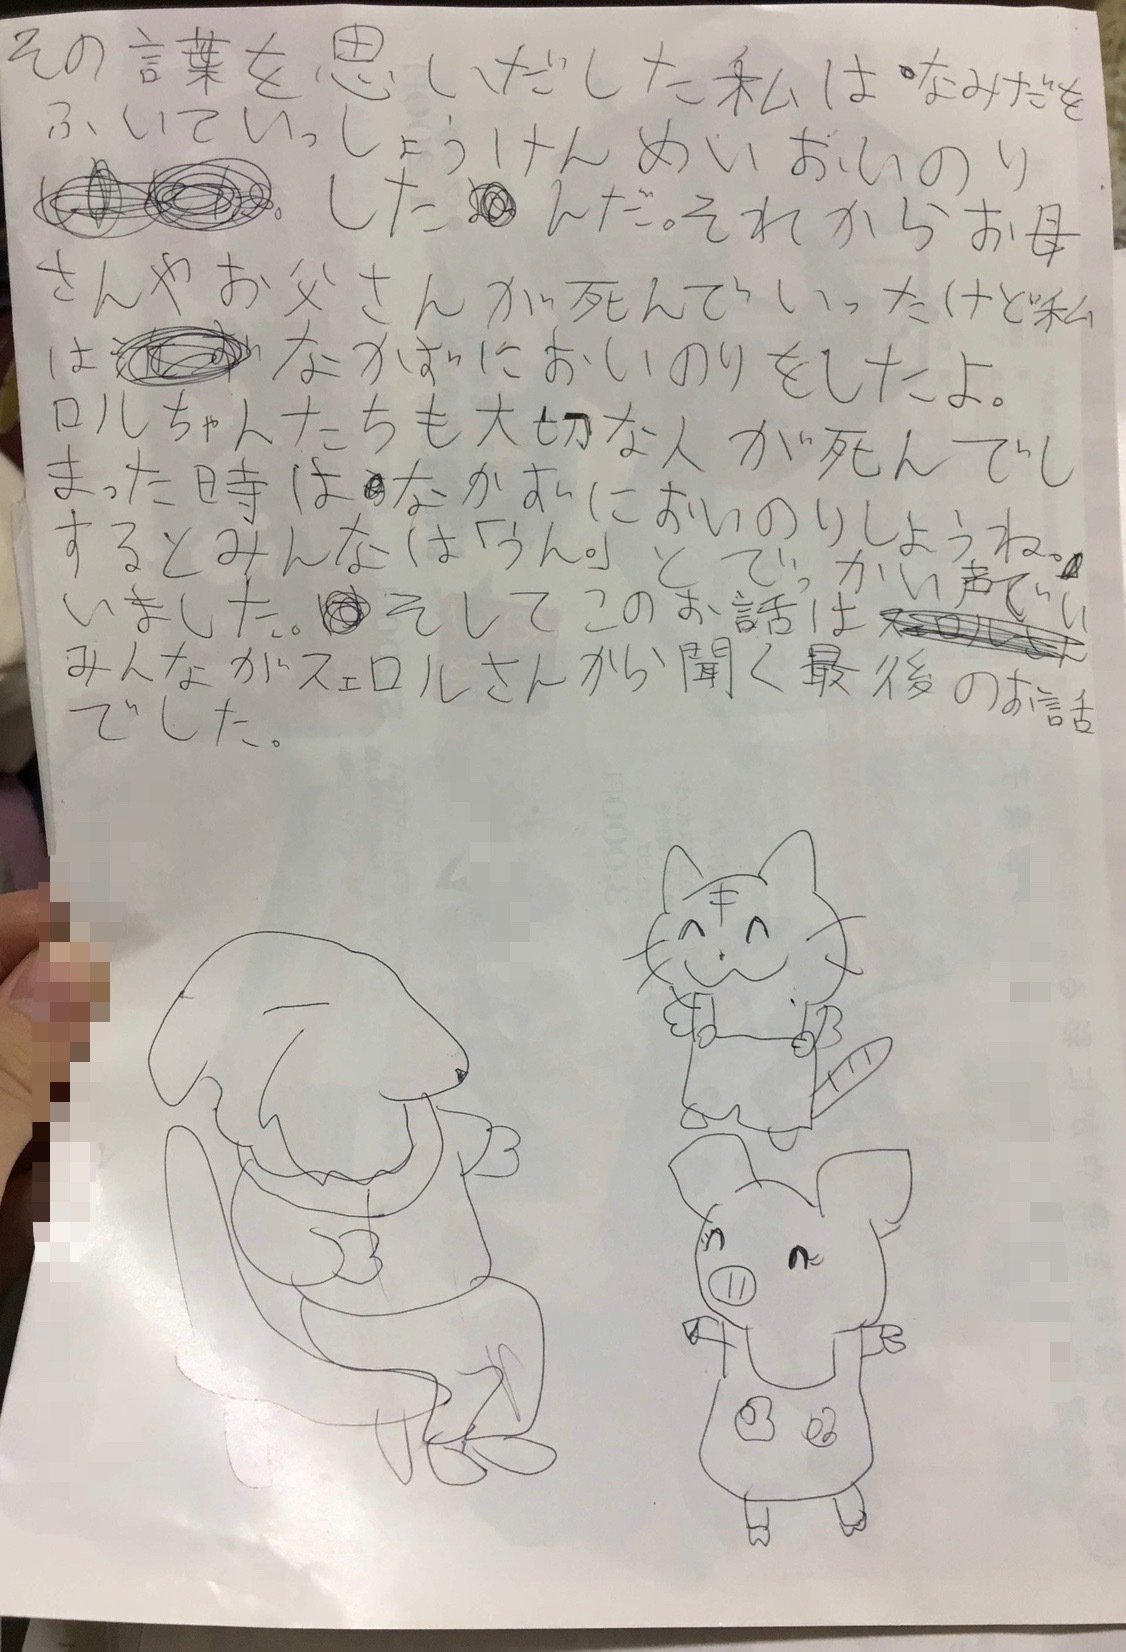 その言葉を思いだした私はなみだを
ふいていっしょうけんめいおいのり
した んだ。それからお母
さんやお父さんが死んでいったけど私
は なかずにおいのりをしたよ。
ロルちゃんたちも大切な人が死んでし
まった時はなかずにおいのりしようね。
するとみんなは「うん。」とでっかい声でい
いました。そしてこのお話は
みんながスェロルさんから聞く最後のお話
でした。